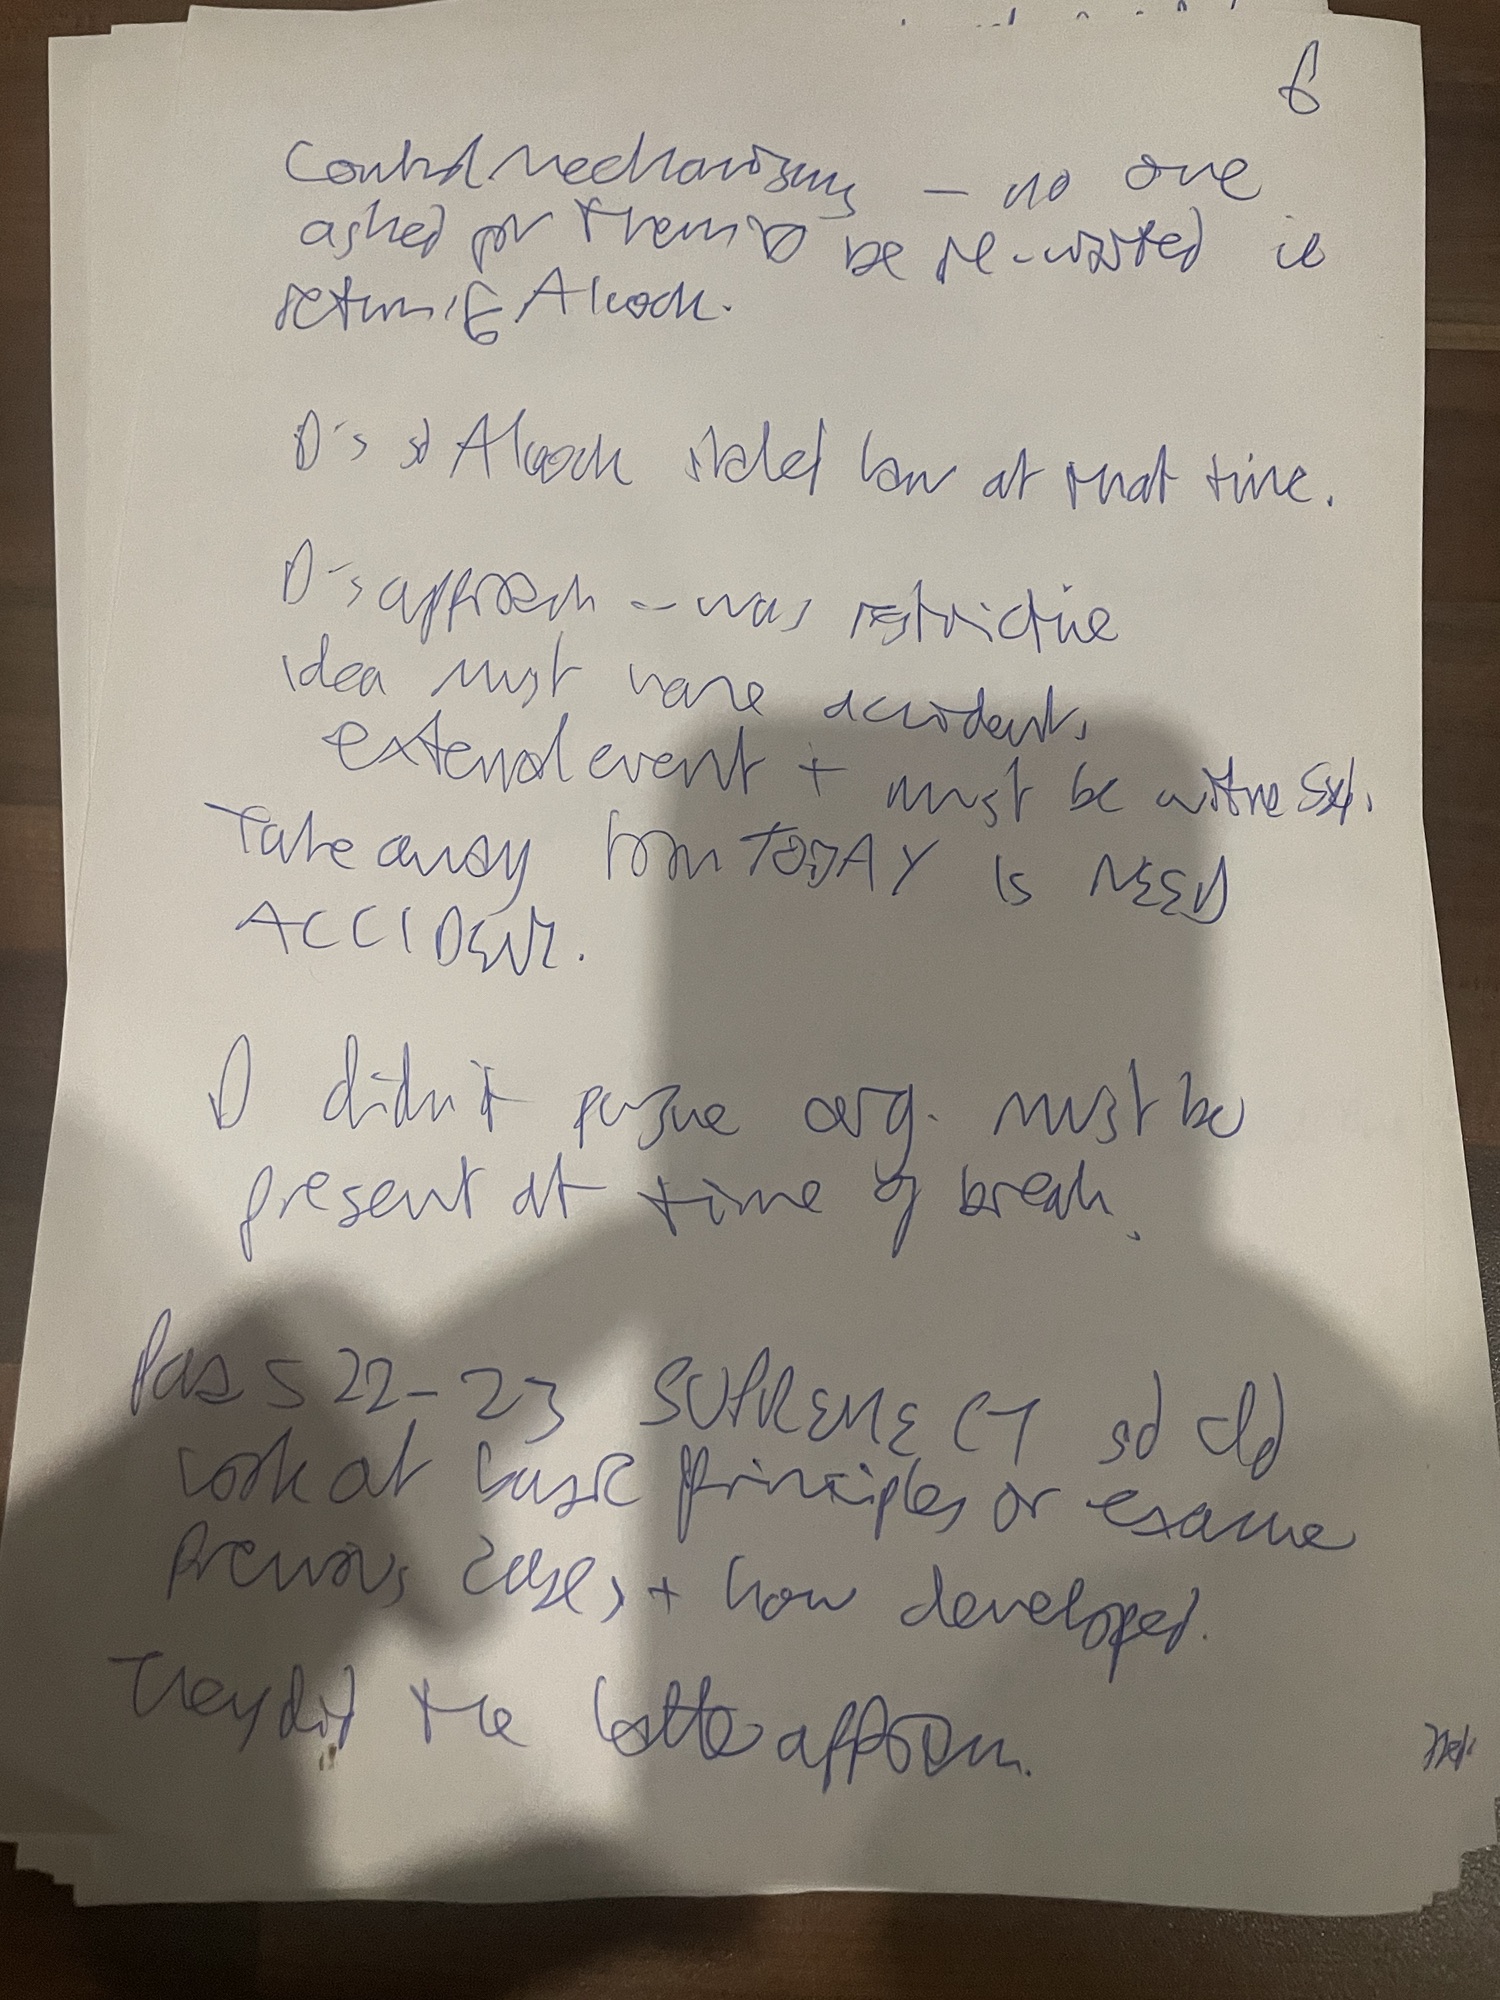 6
Control Mechanisms - no one
asked for them to be re-visited ie
return to Alcock.
D's sd Alcock stated law at that time.
D's approach - was restrictive
idea must have accident,
external event + must be witnessed.
Take away from TODAY is NEED
ACCIDENT.
D didn't pursue arg. must be
present at time of breach.
Paras 22-23 SUPREME CT sd cld
look at basic principles or examine
previous cases + how developed.
They did the latter approach.